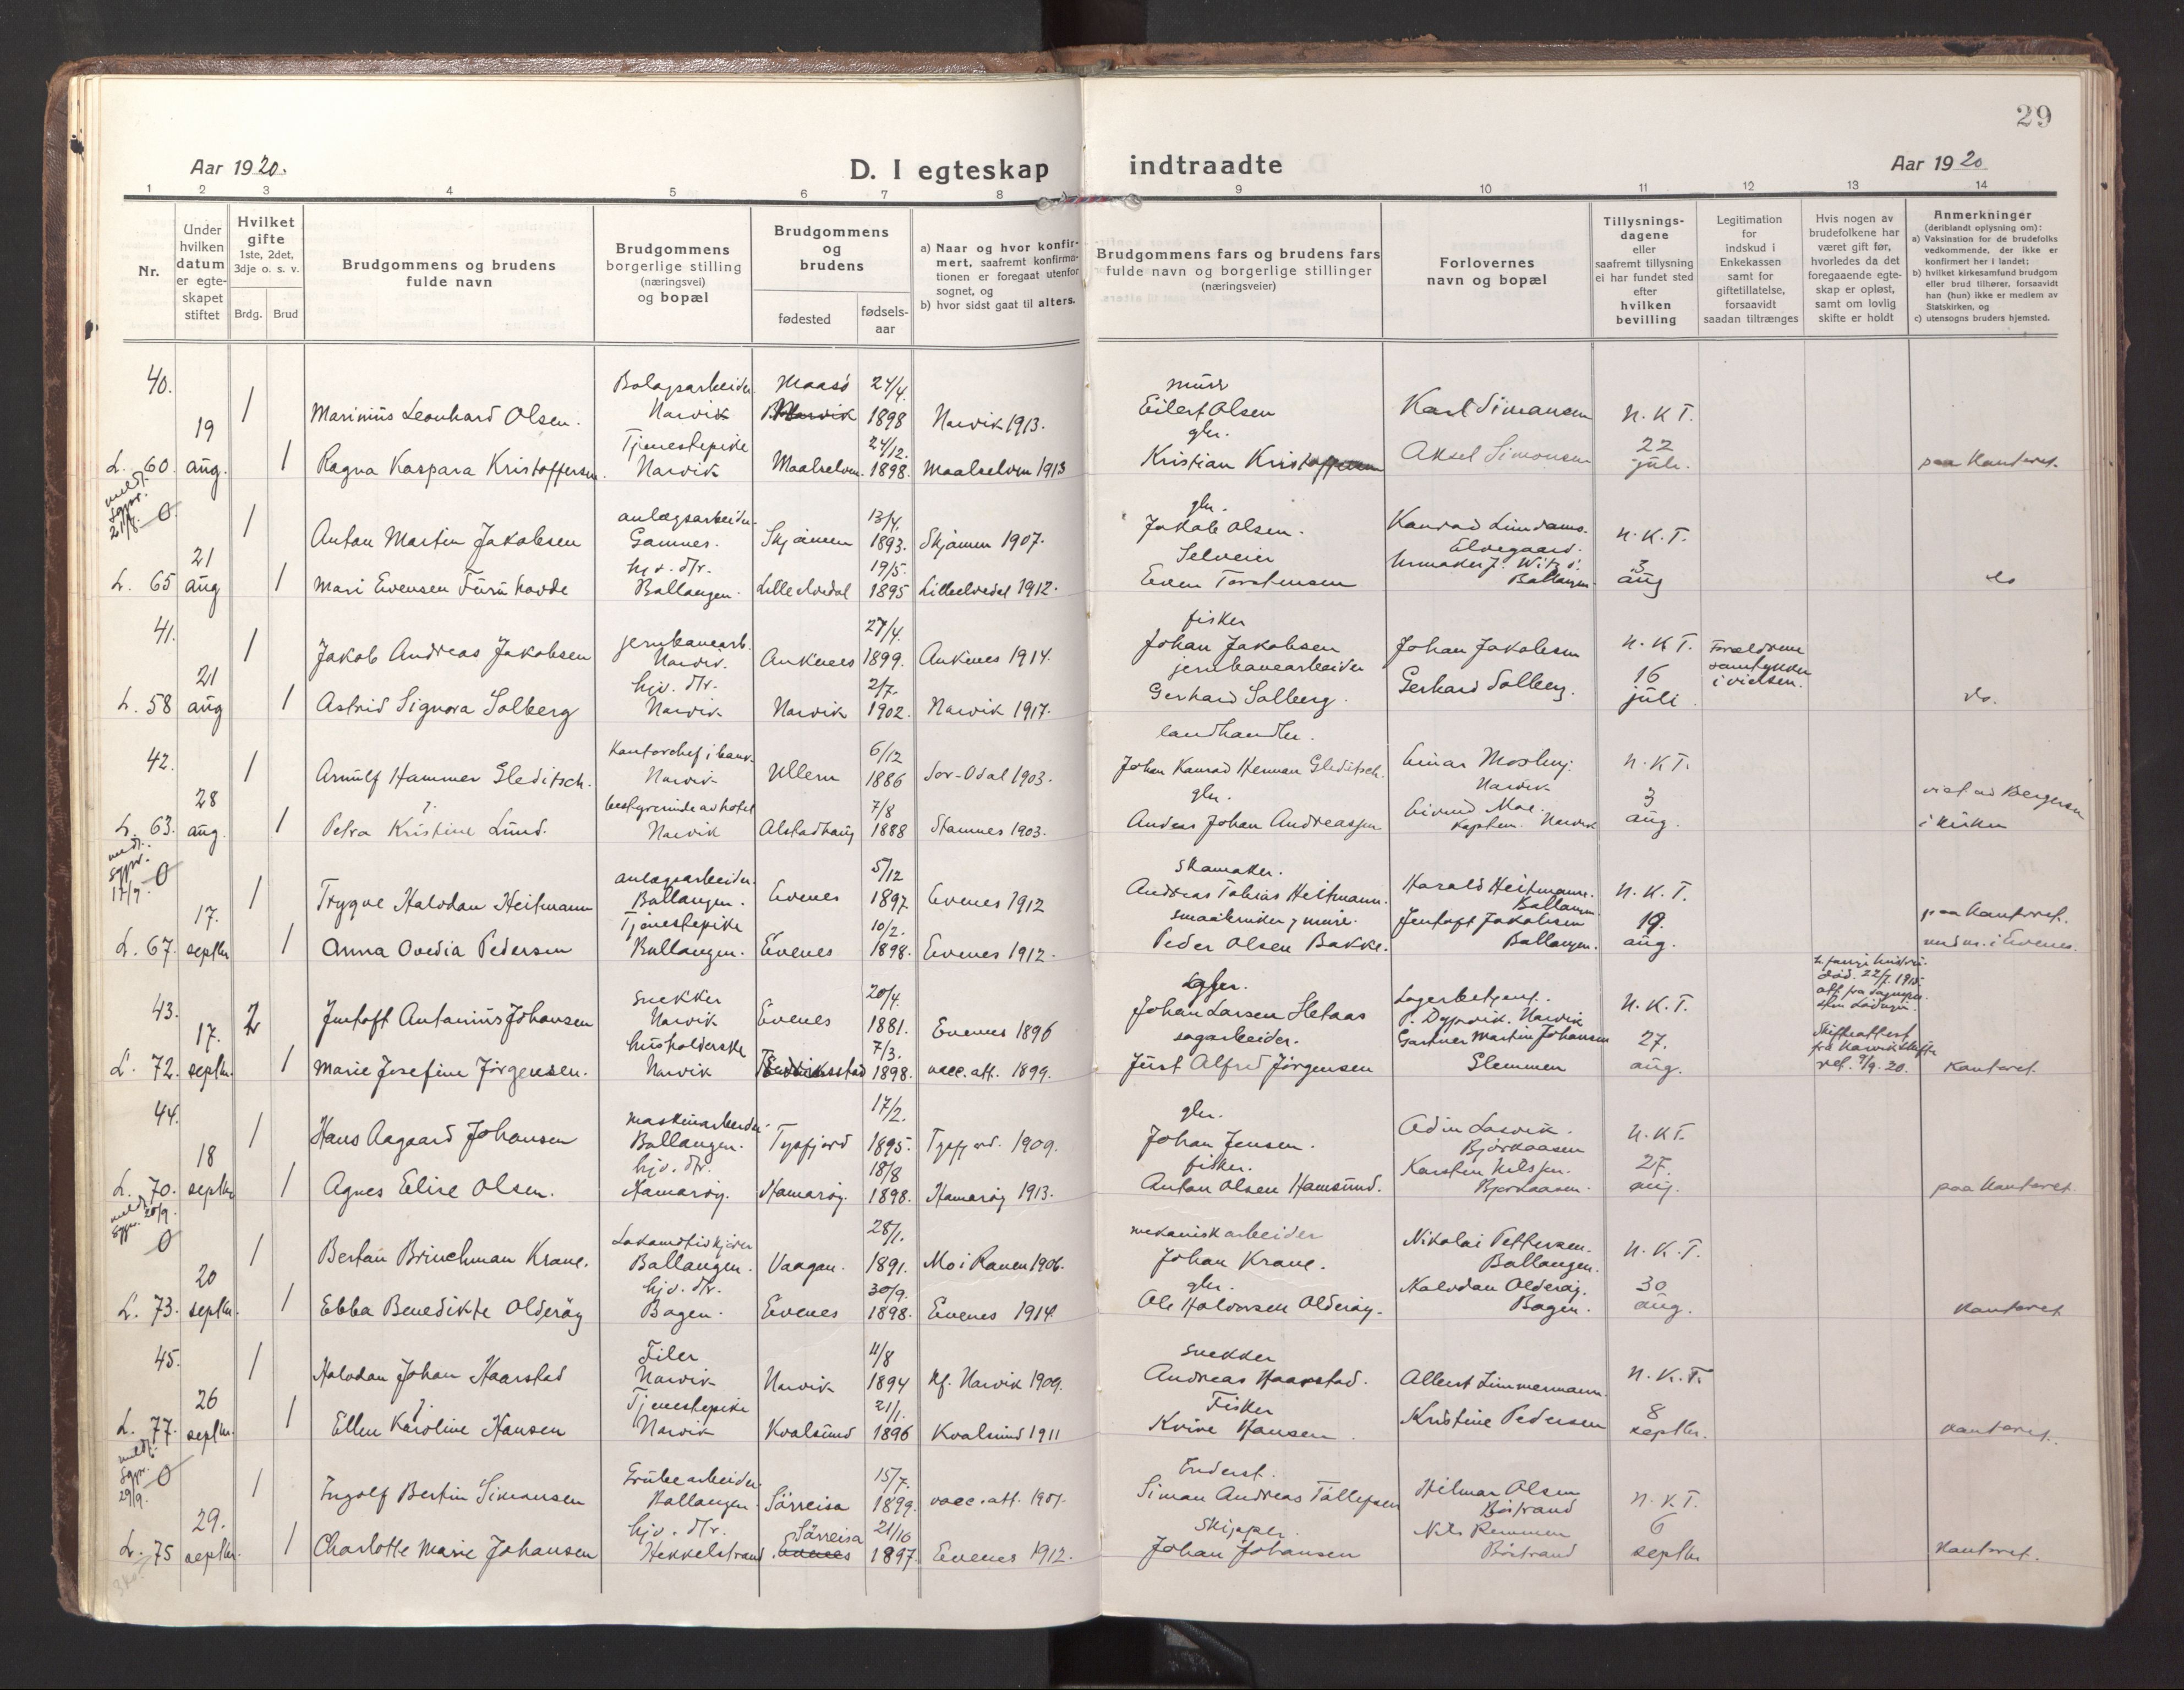 29
Aar 1920.
D. I egteskap indtraadte
Aar 1920
1 2 3 4 5 6 7 8 9 10 11 12 13 14
Nr.
Under hvilken datum er egte-skapet stiftet
Hvilket gifte
1ste, 2det, 3dje o. s. v.
Brdg. Brud
Brudgommens og brudens fulde navn
Brudgommens borgerlige stilling (næringsvei) og bopæl
Brudgommens og brudens
fødested
fødsels-aar
a) Naar og hvor konfir-mert, saafremt konfirma-tionen er foregaat utenfor sognet, og
b) hvor sidst gaat til alters.
Brudgommens fars og brudens fars fulde navn og borgerlige stillinger (næringsveier)
Forlovernes navn og bopæl
Tillysnings-dagene eller saafremt tillysning ei har fundet sted efter hvilken bevilling
Legitimation for indskud i Enkekassen samt for giftetillatelse, forsaavidt saadan tiltrænges
Hvis nogen av brudefolkene har været gift før, hvorledes da det foregaaende egte-skap er opløst, samt om lovlig skifte er holdt
Anmerkninger (deriblandt oplysning om):
a) Vaksination for de brudefolks vedkommende, der ikke er konfirmert her i landet;
b) hvilket kirkesamfund brudgom eller brud tilhører, forsaavidt han (hun) ikke er medlem av Statskirken, og
c) utensogns bruders hjemsted.
40. 1 Marinius Leonhard Olsen. Narvik Maasö 24/4. 1898 Narvik 1913. murer Eilert Olsen Karl Simonsen N. K T.
L. 60. 19 aug. 1 Ragna Kaspara Kristoffersen. Tjenestepike Narvik Maalselven. 24/12. 1898. Maalselven 1913 gbr. Kristian Kristoffersen Aksel Simonsen 22 juli. paa kontoret.
meldt Sgpr. 21/8. 0 1 Anton Martin Jakobsen anlægsarbeider Skjomen 13/4. 1893. Skjomen 1907. gbr. Jakob Olsen. N. K. T.
L. 65 21 aug 1 Mari Evensen Furuhovde Ballangen. Lille Elvedal 19/5. 1895 Lilleelvedal 1912. Selveier Even Torstensen Ballangen. 3 aug do
41. 1 Jakob Andreas Jakobsen jernbanearb. Narvik. Ankenes 27/4. 1899. Ankenes 1914. fisker Johan Jakobsen Johan Jakobsen N. K T. Forældrene samtykker i vielsen.
L. 58 21 aug 1 Astrid Signora Solberg hjv. dtr. Narvik Narvik 2/7. 1902. Narvik 1917. jernbanearbeider Gerhard Solberg. Gerhard Solberg. 16 juli do.
42. 1 Arnulf Hammer Gleditsch. Kontorchef i bank Narvik Ullern 6/12 1886 Sør-Odal 1903. landhandler. Johan Konrad Herman Gleditsch. Einar Mosling. Narvik N. K T.
L. 63. 28 aug. 1 Petra Kristine Lund. bestyrerinde av hotel Narvik Alstadhaug 7/8 1888 Stamnes 1903. gbr. Andeas Johan Andreassen Eivind Moe. Kaptein. Narvik 3 aug. viet av Bergersen i kirken
meldt. Sgpr. 17/9. 0 1 Trygve Halvdan Heitmann anlægsarbeider. Ballangen. Evenes 5/12 1897 Evenes 1912 Skomaker. Andreas Tobias Heitmann. Harald Heitmann. Ballangen N. K. T.
L. 67. 17. septbr 1 Anna Ovedia Pedersen Tjenestepike Ballangen. Evenes 10/2. 1898. Evenes 1912. Peder Olsen Bakke. Jentoft Jakobsen Ballangen. 19. aug. paa kontoret.
43. 2 Jentoft Antonius Johansen snekker Narvik Evenes 20/4. 1881. Evenes 1896 Johan Larsen Hetaas Narvik N. K. T.
L. 72. 17. septbr. 1 Marie Josefine Jörgensen. husholderske Narvik Fredriksstad 7/3. 1898. vacc. att. 1899. sagarbeider. Just Alfred Jörgensen Gartner Martin Johansen Slemmen 27. aug. Skifteattest fra Narvik skifteret. 9/9. 20. Kontoret.
44. 1 Hans Aagaard Johansen maskinarbeider. Ballangen. Tysfjord 17/2. 1895. Tysfjord. 1909. gbr. Johan Jensen. Bjørkaasen N. K T.
L. 70. 18 septbr 1 Agnes Elise Olsen. hjv. dtr. Hamarøy. Hamarøy. 18/8 1898. Hamarøy 1913. fisker. Anton Olsen Hamsund. Karsten Nilssen. Bjørkaasen. 27. aug. paa kontoret.
meldt Sgpr. 20/9. 0 1 Bertan Brinchman Krane. Lokomotivkjører Ballangen. Vaagan. 28/1. 1891. Mo i Ranen 1906. mekanisk arbeider Johan Krane. Nikolai Pettersen. Ballangen. N. K. T.
L. 73. 20 septbr. 1 Ebba Benedikte Olderøy hjv. dtr. Bogen. Evenes 30/9. 1898. Evenes 1914 gbr. Ole Halvorsen Olderøy. Halvdan Olderøy. Bogen. 30 aug. Kontoret
45. 1 Halvdan Johan Haarstad Filer Narvik Narvik 11/8 1894 Kf. Narvik 1909. snekker Andreas Haarstad. Albert Zimmermann. N. K. T.
L. 77. 26 septbr. 1 Ellen Karoline Hansen Tjenestepike Narvik Kvalsund 21/1. 1896 Kvalsund 1911 Fisker Hansen. Kristine Pedersen 8 septbr. Kontoret.
meldt. Sgpr. 29/9. 0 1 Ingolf Bertin Simonsen Grubearbeider Ballangen Sörreisa 15/7. 1899. vacc. att. 1901. Simon Andreas Tollefsen Hilmar Olsen Bøstrand N. K T.
L. 75 29. septbr. 1 Charlotte Marie Johansen hjv. dtr. Hekkelstrand Sörreisa Evenes 21/10 1897 Evenes 1912. Skipper. Johan Johansen Nils Remmen Bøstrand 6 septbr Kontoret.